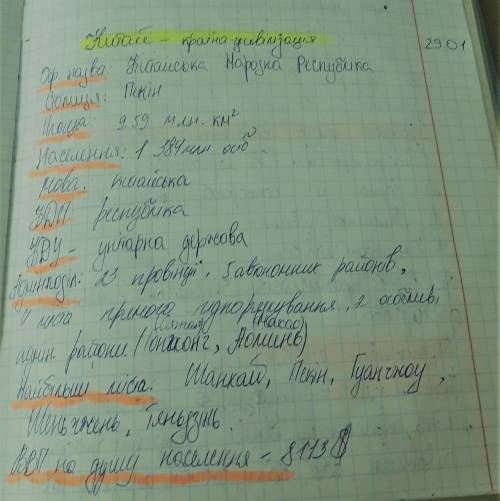 Китай – країна-цивілізація
29.01
Оф. назва: Китайська Народна Республіка
Столиця: Пекін
Площа: 9.59 млн. км²
Населення: 1 384 млн осіб
Мова: китайська
ФДП: республіка
ФДУ – унітарна держава
Адмінподіл: 23 провінції, 5 автономних районів,
4 міста прямого підпорядкування, 2 особливі
(Макао)
адмін. райони (Гонконг, Аоминь)
Найбільші міста: Шанхай, Пекін, Гуанчжоу,
Шеньчжень, Тяньцзінь.
ВВП на душу населення – 8113 $